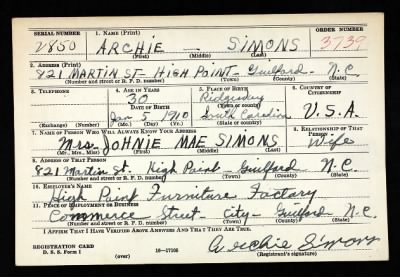 SERIAL NUMBER 1. NAME (Print) ORDER NUMBER
V850 ARCHIE — SIMONS 3739
(First) (Middle) (Last)
2. ADDRESS (Print)
821 MARTIN ST — HIGH POINT — Guilford — N.C.
(Number and street or R. F. D. number) (Town) (County) (State)
3. TELEPHONE 4. AGE IN YEARS 5. PLACE OF BIRTH 6. COUNTRY OF CITIZENSHIP
30 Ridgeway
DATE OF BIRTH (Town or county)
Jan 5 1910 South Carolina U.S.A.
(Exchange) (Number) (Mo.) (Day) (Yr.) (State or country)
7. NAME OF PERSON WHO WILL ALWAYS KNOW YOUR ADDRESS 8. RELATIONSHIP OF THAT PERSON
Mrs. JOHNIE MAE SIMONS Wife
(Mr., Mrs., Miss) (First) (Middle) (Last)
9. ADDRESS OF THAT PERSON
821 Martin St. High Point — Guilford N.C.
(Number and street or R. F. D. number) (Town) (County) (State)
10. EMPLOYER'S NAME
High Point Furniture Factory
11. PLACE OF EMPLOYMENT OR BUSINESS
Commerce Street — City — Guilford N.C.
(Number and street or R. F. D. number) (Town) (County) (State)
I AFFIRM THAT I HAVE VERIFIED ABOVE ANSWERS AND THAT THEY ARE TRUE.
REGISTRATION CARD Archie Simons
D. S. S. Form 1 (over) 16—17105 (Registrant's signature)